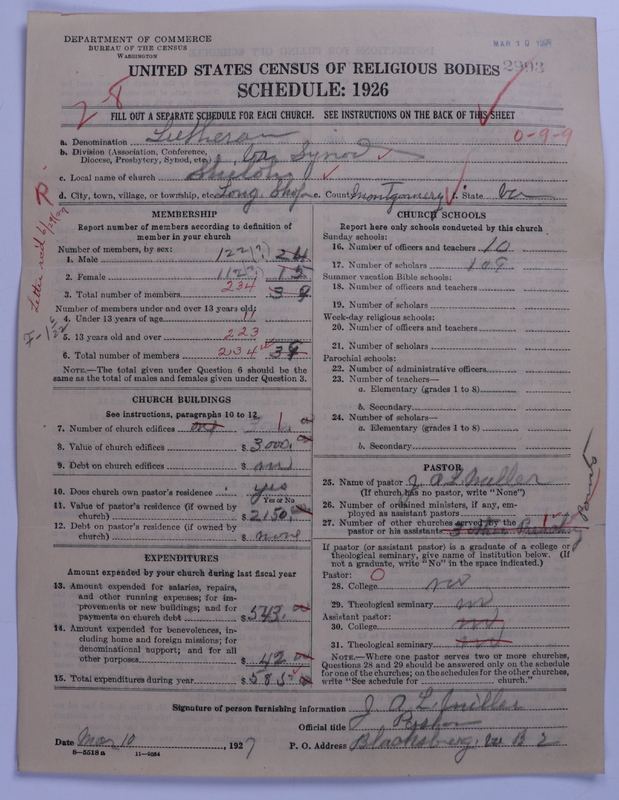 DEPARTMENT OF COMMERCE
BUREAU OF THE CENSUS
WASHINGTON
MAR 10
2993
UNITED STATES CENSUS OF RELIGIOUS BODIES
SCHEDULE: 1926
28
FILL OUT A SEPARATE SCHEDULE FOR EACH CHURCH. SEE INSTRUCTIONS ON THE BACK OF THIS SHEET
0-9-9
a. Denomination Lutheran
b. Division (Association, Conference, Diocese, Presbytery, Synod, etc.) Va. Synod
c. Local name of church Shiloh
d. City, town, village, or township, etc. Long Shop e. County Montgomery f. State Va
MEMBERSHIP
Report number of members according to definition of
member in your church
Number of members, by sex:
1. Male 122 (?) 24
2. Female 112 (?) 15
3. Total number of members 234 39
Number of members under and over 13 years old:
4. Under 13 years of age 11
5. 13 years old and over 223
6. Total number of members 234 39
NOTE.—The total given under Question 6 should be
same as the total of males and females given under Question 3.
CHURCH BUILDINGS
See instructions, paragraphs 10 to 12
7. Number of church edifices one 1
8. Value of church edifices $ 3000.00
9. Debt on church edifices $
10. Does church own pastor's residence yes
Yes or No
11. Value of pastor's residence (if owned by
church) $ 2150.00
12. Debt on pastor's residence (if owned by
church) $ none
EXPENDITURES
Amount expended by your church during last fiscal year
13. Amount expended for salaries, repairs,
and other running expenses; for im-
provements or new buildings; and for
payments on church debt $ 543.00
14. Amount expended for benevolences, in-
cluding home and foreign missions; for
denominational support; and for all
other purposes $ 42.00
15. Total expenditures during year $ 585.00
CHURCH SCHOOLS
Report here only schools conducted by this church
Sunday schools:
16. Number of officers and teachers 10
17. Number of scholars 109
Summer vacation Bible schools:
18. Number of officers and teachers
19. Number of scholars
Week-day religious schools:
20. Number of officers and teachers
21. Number of scholars
Parochial schools:
22. Number of administrative officers
23. Number of teachers—
a. Elementary (grades 1 to 8)
b. Secondary
24. Number of scholars—
a. Elementary (grades 1 to 8)
b. Secondary
PASTOR
25. Name of pastor J. A. L. Miller
(If church has no pastor, write "None")
26. Number of ordained ministers, if any, em-
ployed as assistant pastors
27. Number of other churches served by the
pastor or his assistants
If pastor (or assistant pastor) is a graduate of a college or
theological seminary, give name of institution below. (If
not a graduate, write "No" in the space indicated.)
Pastor: 0
28. College no
29. Theological seminary no
Assistant pastor:
30. College no
31. Theological seminary no
NOTE.—Where one pastor serves two or more churches,
Questions 28 and 29 should be answered only on the schedule
for one of the churches; on the schedules for the other churches,
write "See schedule for church."
Signature of person furnishing information J. A. L. Miller
Official title Pastor
Date Mar 10, 1927 P. O. Address Blacksburg, Va
8—5518 a